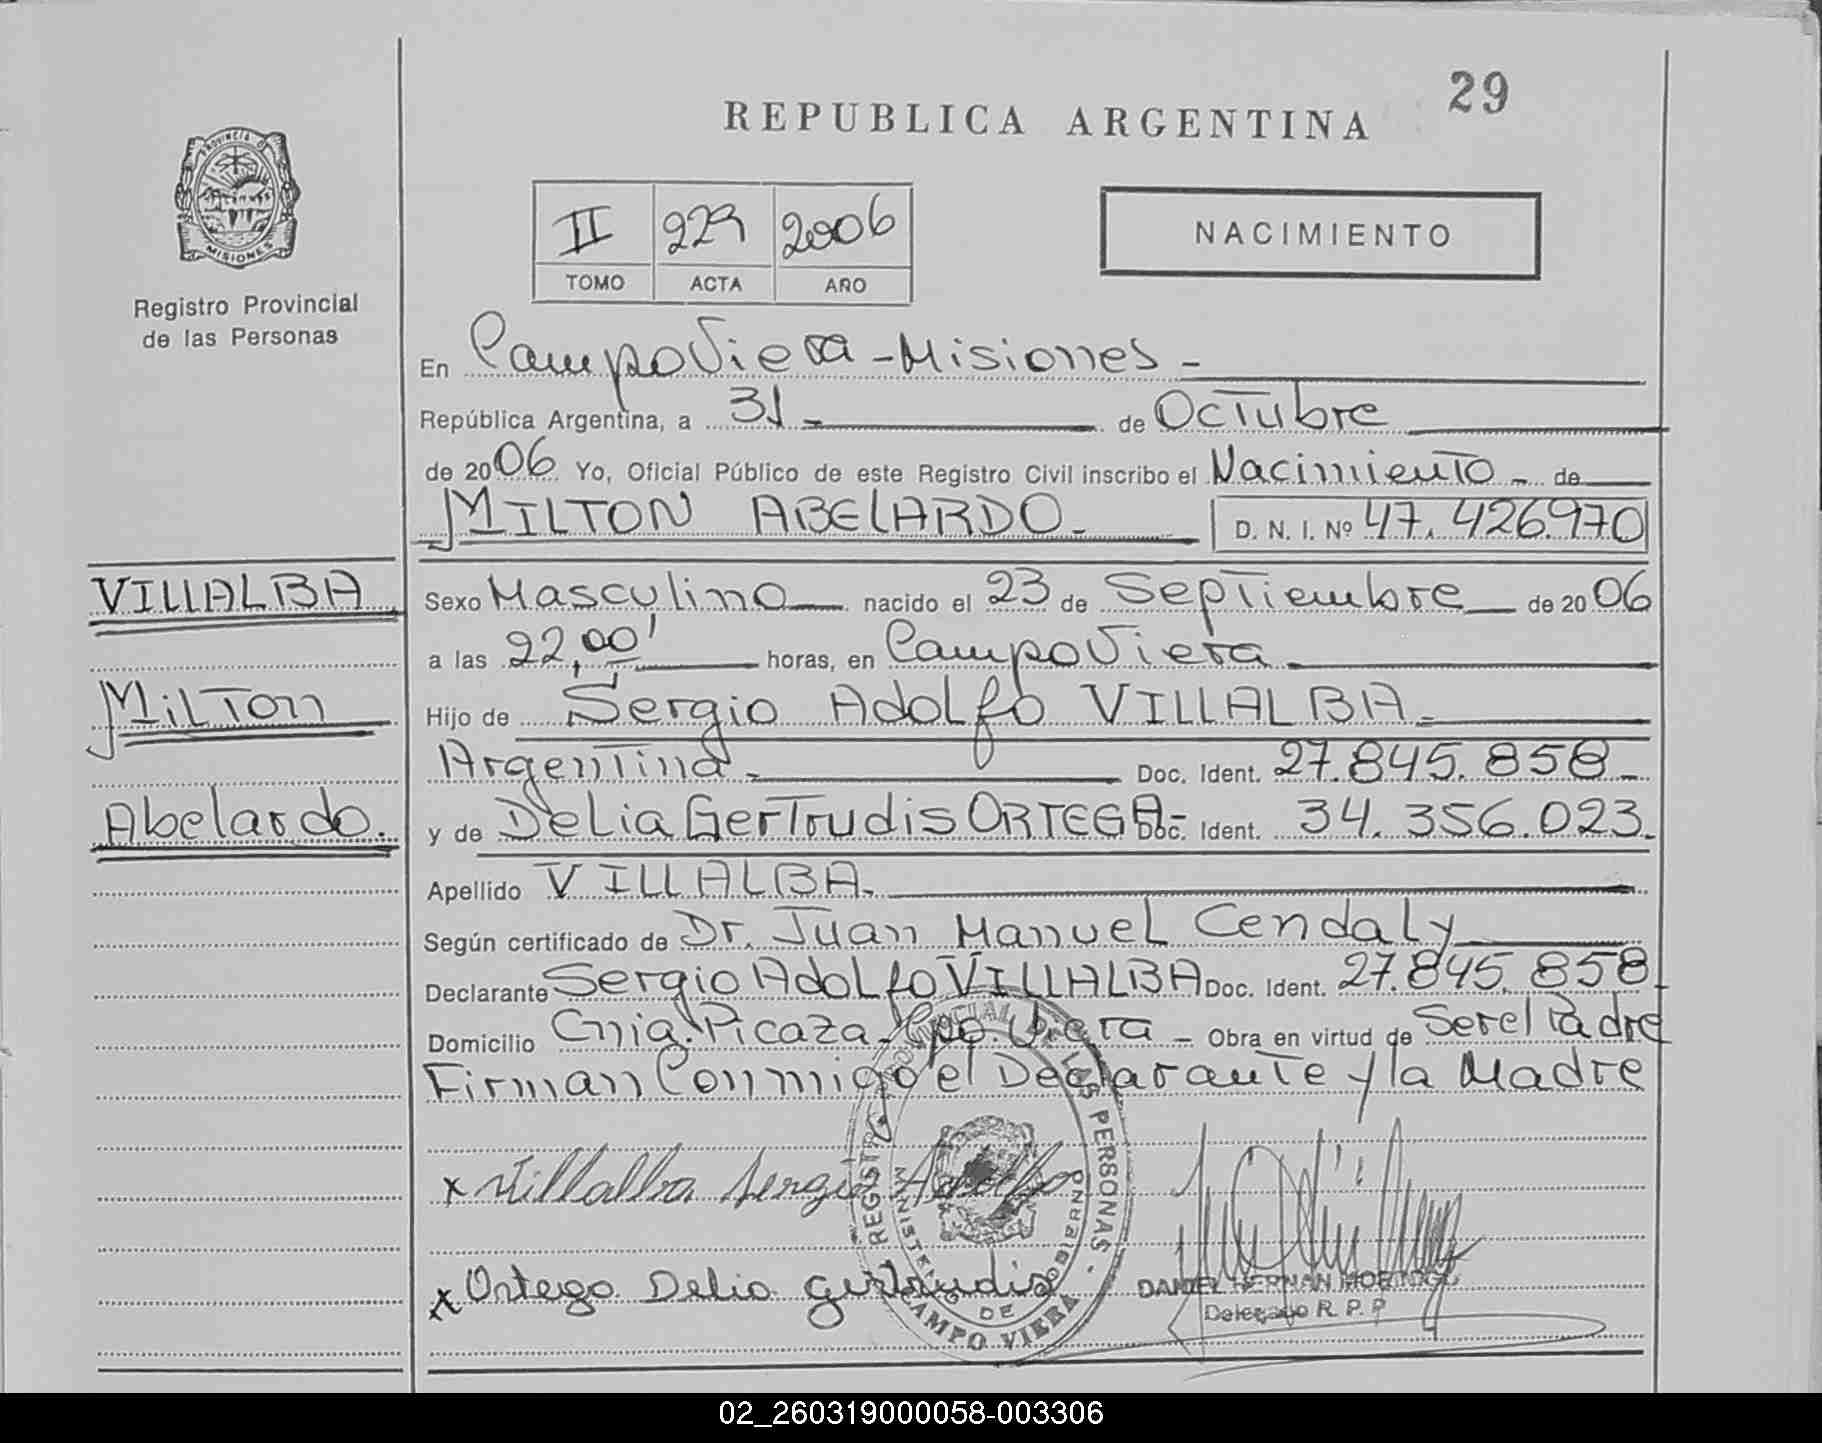 29
REPUBLICA ARGENTINA
PROVINCIA D
MISIONES
Registro Provincial
de las Personas
II 229 2006
TOMO ACTA AÑO
NACIMIENTO
En Campo Viera - Misiones -
República Argentina, a 31 - de Octubre
de 2006 Yo, Oficial Público de este Registro Civil inscribo el Nacimiento - de
MILTON ABELARDO - D. N. I. Nº 47.426.970
VILLALBA
Milton
Abelardo.
Sexo Masculino nacido el 23 de Septiembre de 2006
a las 22,00' horas, en Campo Viera
Hijo de Sergio Adolfo VILLALBA -
Argentina - Doc. Ident. 27.845.858 -
y de Delia Gertrudis ORTEGA - Doc. Ident. 34.356.023.
Apellido VILLALBA.
Según certificado de Dr. Juan Manuel Cendaly
Declarante Sergio Adolfo VILLALBA Doc. Ident. 27.845.858
Domicilio Cnia. Picaza - Cpo. Viera - Obra en virtud de Ser el Padre
Firman Conmigo el Declarante y la Madre
x Villalba Sergio Adolfo
x Ortega Delia Gertrudis
REGISTRO PROVINCIAL DE LAS PERSONAS -
MINISTERIO DE GOBIERNO
CAMPO VIERA
DANIEL HERNAN
Delegado R. P. P
02_260319000058-003306